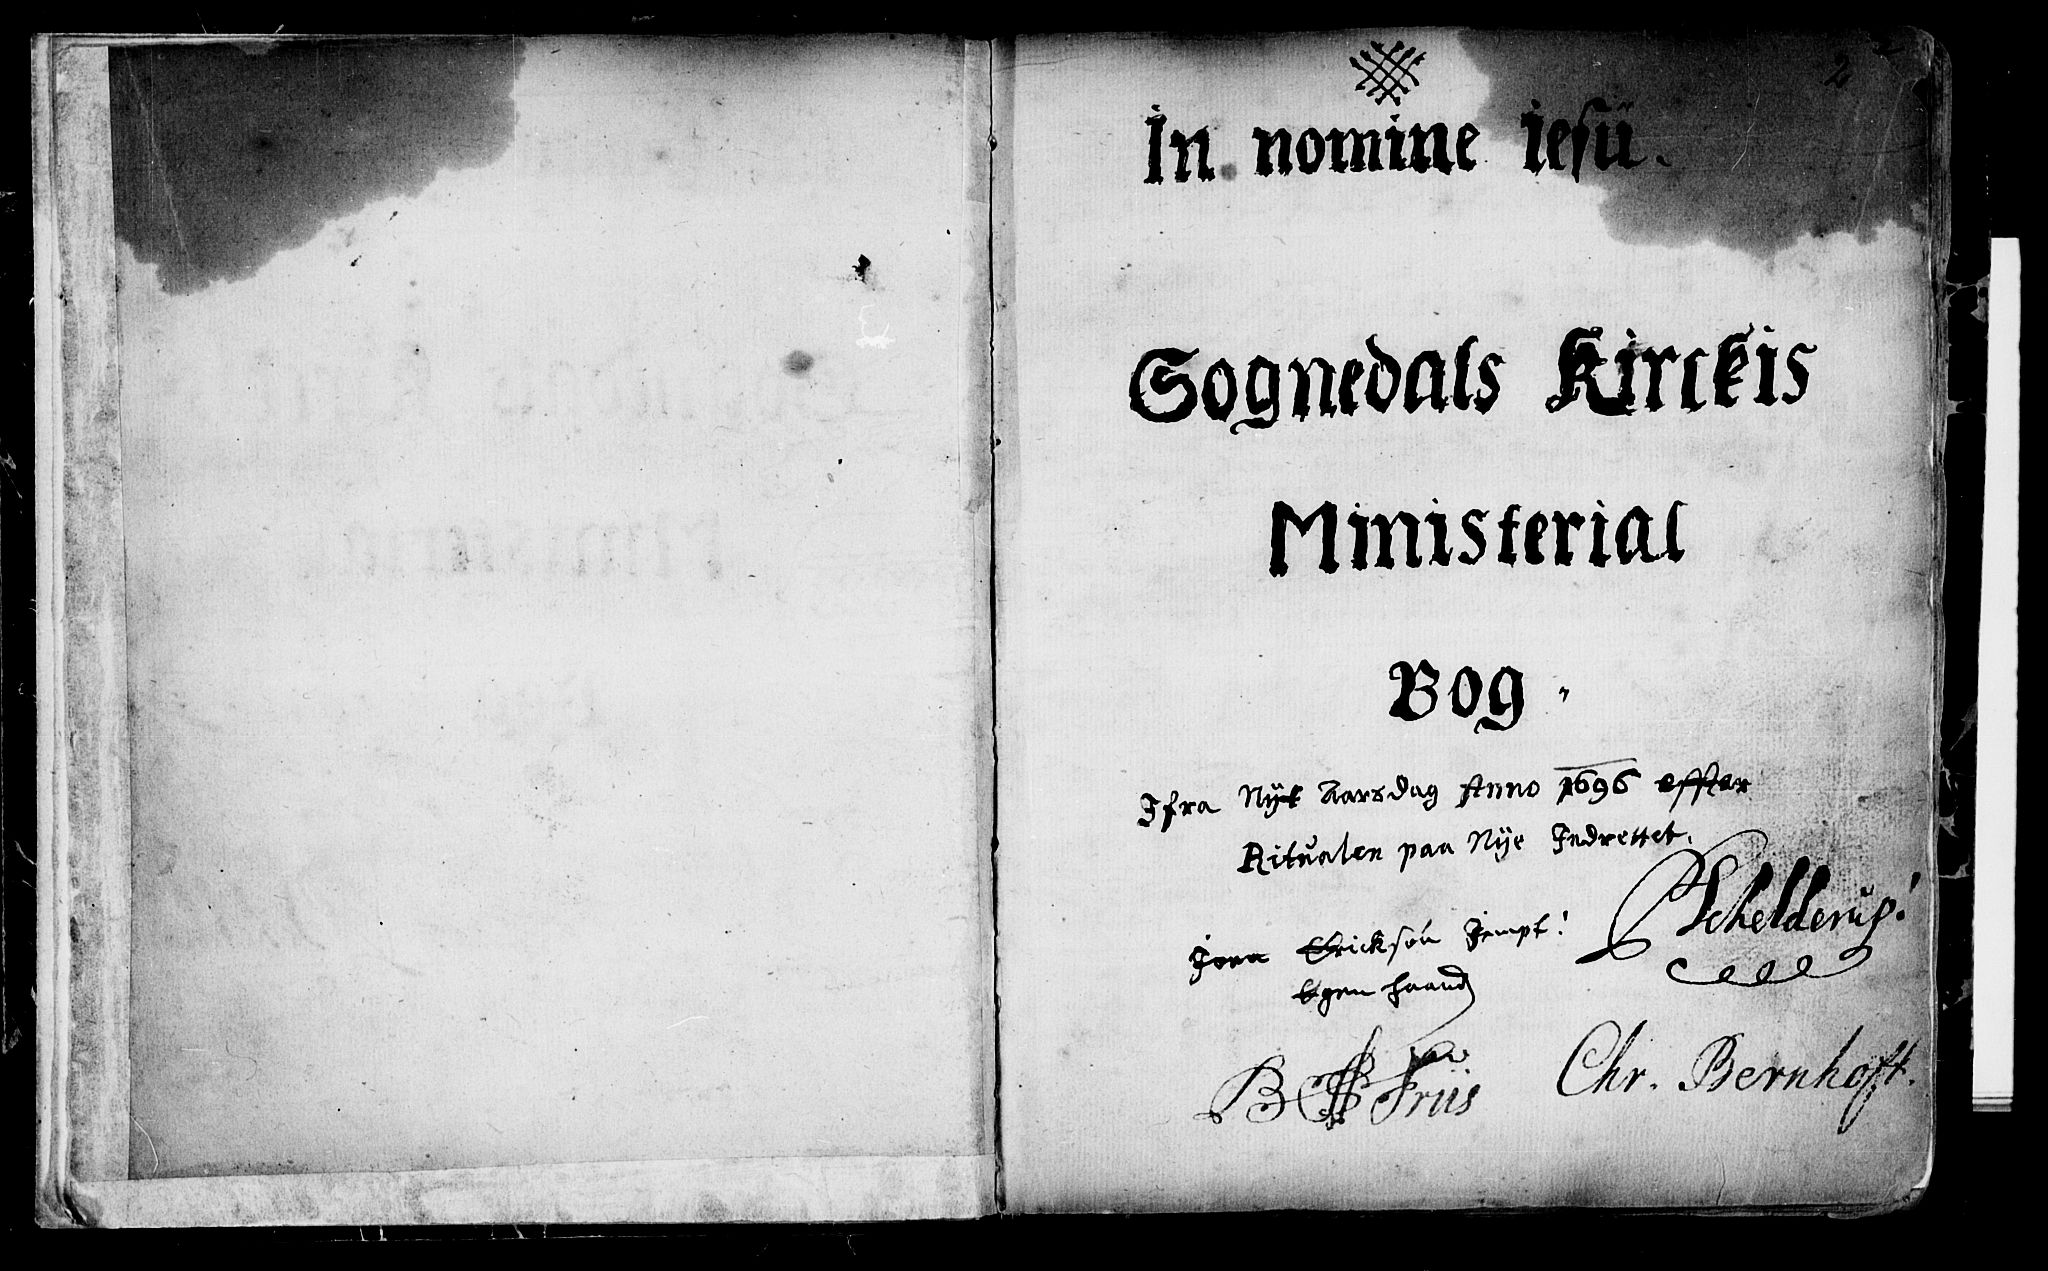 2
In nomine iesü.
Sognedals Kirckis
Ministerial
Bog.
Ifra Nyt Aarsdag Anno 1696 effter
Ritualen paa Nye Indrettet.
Schelderup!
Ericksøn
Egen haand
B Friis
Chr. Bernhoft.